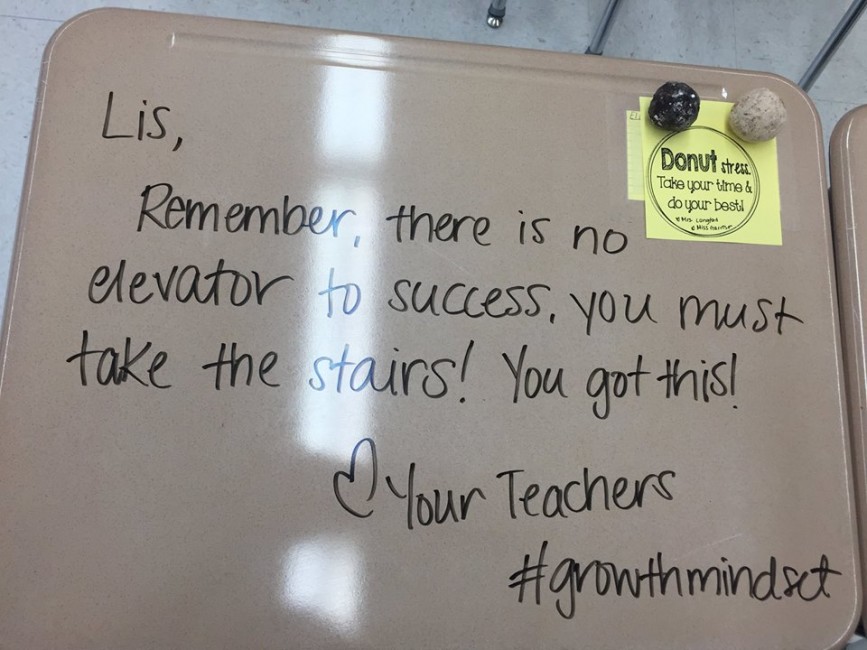 Lis,
Remember, there is no
elevator to success, you must
take the stairs! You got this!
♡ Your Teachers
#growthmindset
Donut stress.
Take your time &
do your best!
Mrs.
& Miss